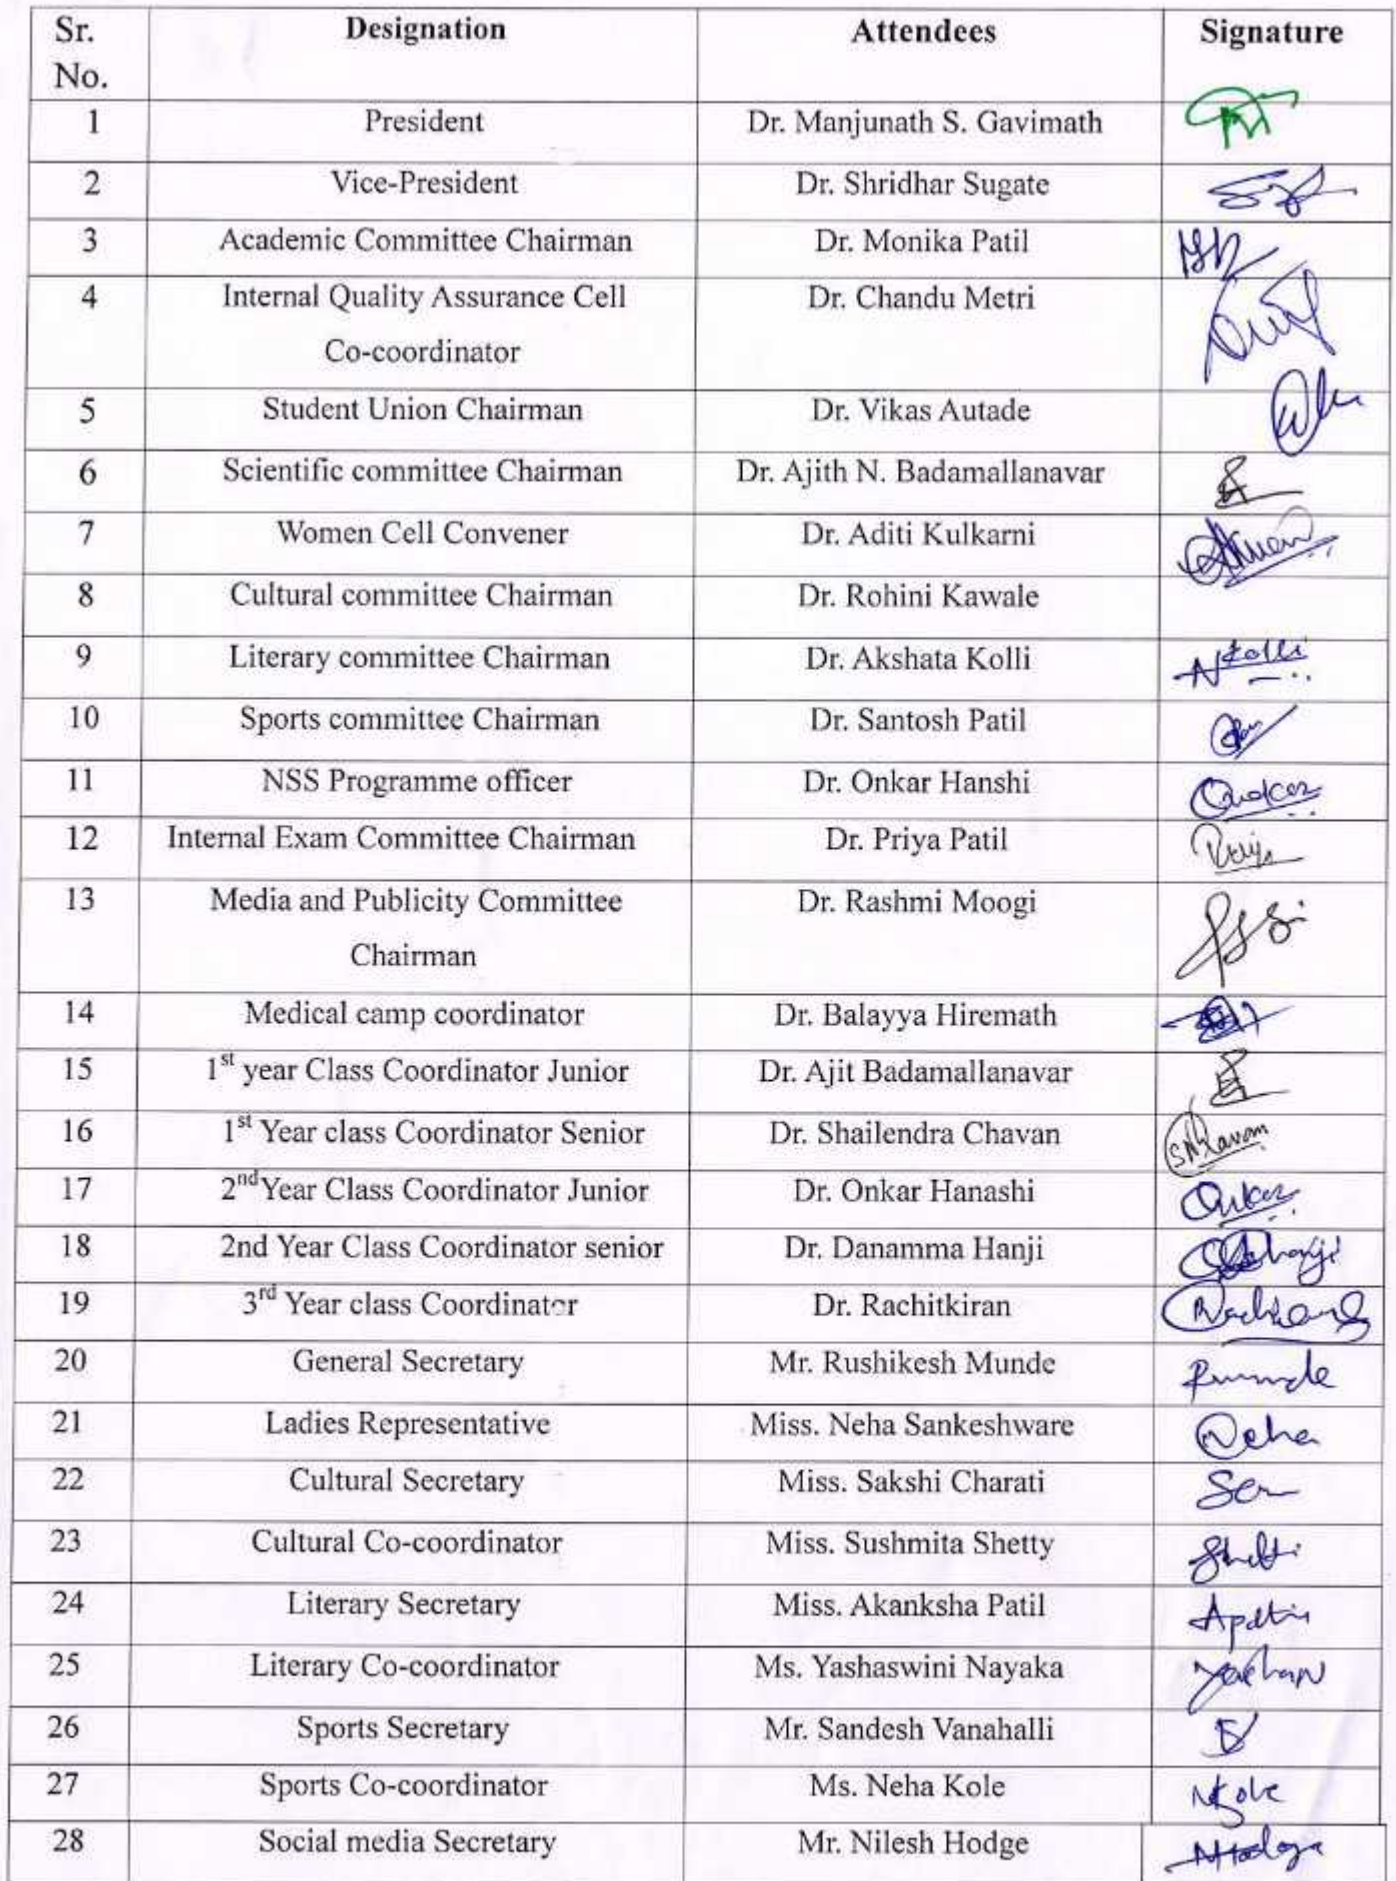 Sr. No. Designation Attendees Signature
1 President Dr. Manjunath S. Gavimath
2 Vice-President Dr. Shridhar Sugate
3 Academic Committee Chairman Dr. Monika Patil
4 Internal Quality Assurance Cell Dr. Chandu Metri
Co-coordinator
5 Student Union Chairman Dr. Vikas Autade
6 Scientific committee Chairman Dr. Ajith N. Badamallanavar
7 Women Cell Convener Dr. Aditi Kulkarni
8 Cultural committee Chairman Dr. Rohini Kawale
9 Literary committee Chairman Dr. Akshata Kolli NKolli
10 Sports committee Chairman Dr. Santosh Patil
11 NSS Programme officer Dr. Onkar Hanshi Onakar
12 Internal Exam Committee Chairman Dr. Priya Patil Priya
13 Media and Publicity Committee Dr. Rashmi Moogi
Chairman
14 Medical camp coordinator Dr. Balayya Hiremath
15 1st year Class Coordinator Junior Dr. Ajit Badamallanavar
16 1st Year class Coordinator Senior Dr. Shailendra Chavan
17 2nd Year Class Coordinator Junior Dr. Onkar Hanashi Onkar
18 2nd Year Class Coordinator senior Dr. Danamma Hanji
19 3rd Year class Coordinator Dr. Rachitkiran
20 General Secretary Mr. Rushikesh Munde Rmunde
21 Ladies Representative Miss. Neha Sankeshware Neha
22 Cultural Secretary Miss. Sakshi Charati
23 Cultural Co-coordinator Miss. Sushmita Shetty
24 Literary Secretary Miss. Akanksha Patil Apatil
25 Literary Co-coordinator Ms. Yashaswini Nayaka
26 Sports Secretary Mr. Sandesh Vanahalli
27 Sports Co-coordinator Ms. Neha Kole NKole
28 Social media Secretary Mr. Nilesh Hodge